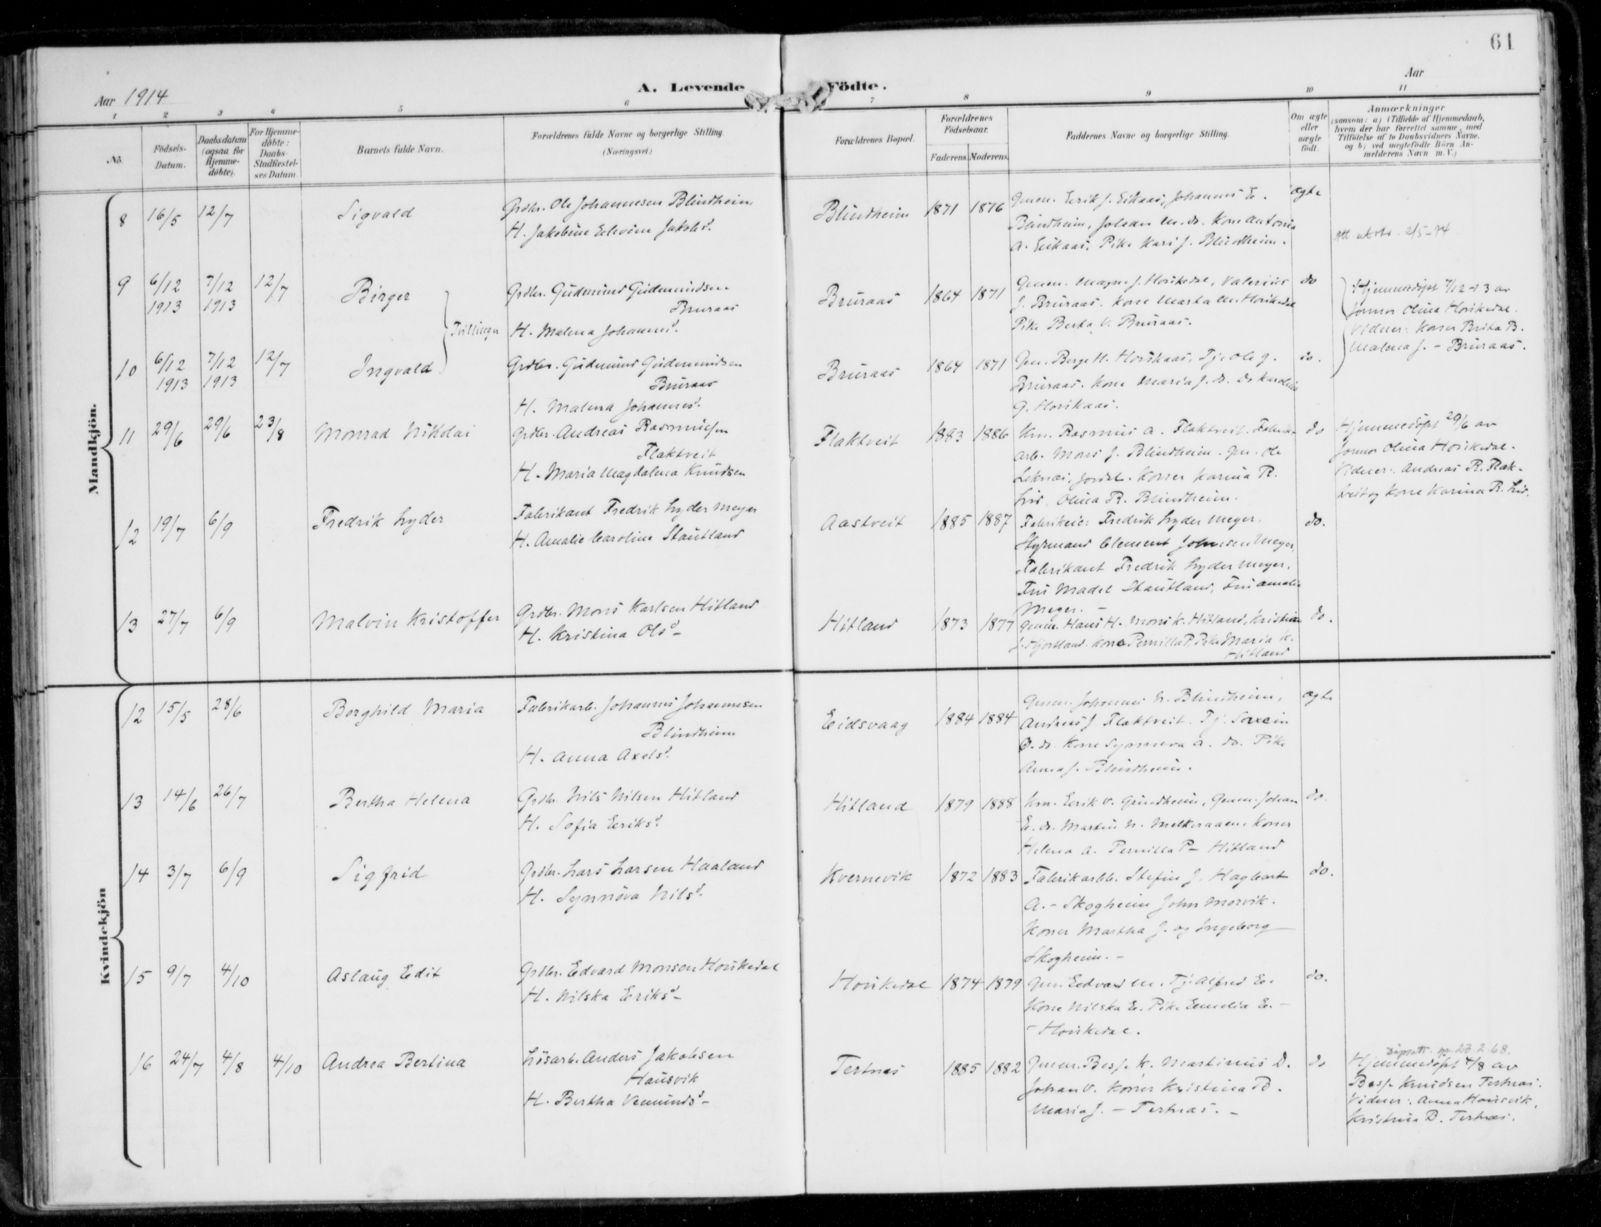 61
Aar 1914
A. Levende Födte.
Aar
1 2 3 4 5 6 7 8 9 10 11
No.
Födsels-Datum.
Daabsdatum (ogsaa for Hjemme-døbte).
For Hjemme-døbte: Daabs-Stadfæstel-ses Datum.
Barnets fulde Navn.
Forældrenes fulde Navne og borgerlige Stilling.
(Næringsvei)
Forældrenes Bopæl.
Forældrenes Fødselsaar.
Faderens. Moderens.
Faddernes Navne og borgerlige Stilling.
Om ægte eller uægte født.
Anmærkninger
(saasom: a) i Tilfælde af Hjemmedaab, hvem der har forrettet samme, med Tilføielse af to Daabsvidners Navne, og b) ved uægtefødte Börn Anmelderens Navn m. V.)
Mandkjön.
8 16/5 12/7 Sigvald
Grdbr. Ole Johannesen Blindheim
H. Jakobine Jakobsd.
Blindheim 1871 1876
Erik J. Eikaas, Johannes E.
Blindheim, Kone Antonia
A. Eikaas, Pike Kari J. Blindheim.
ægte
9 6/12 1913 7/12 1913 12/7 Birger
Tvillinger
Grdbr. Gudmund Gudmundsen
Bruraas
H. Malena Johannesd.
Bruraas 1864 1871
Magne J. Horikedal, Valerius
J. Bruraas. Kone Marta M. Horikedal
Pike Berta V. Bruraas.
do
Hjemmedöpt 7/12-13 av
Jormor Olina Horikedal.
Vidner: Koner Brita B.
Malena J. - Bruraas.
10 6/12 1913 7/12 1913 12/7 Ingvald
Grdbr. Gudmund Gudmundsen
Bruraas
H. Malena Johannesd.
Bruraas 1864 1871
Tj. Ole G.
Bruraas. Kone Maria J.
G. Horikaas.
do.
11 29/6 29/6 23/8 Monrad Nikolai
Grdbr. Andreas Rasmusen
Flaktveit
H. Maria Magdalena Knudsen
Flaktveit 1883 1886
Rasmus A. Flaktveit. Fabrik-
arb. Mons J. Blindheim. Ole
Koner Karina R.
Olina R. Blindheim.
do
Hjemmedöpt 29/6 av
Jormor Olina Horikedal.
Vidner: Andreas R. Flak-
tveit og Kone Karina R.
12 19/7 6/9 Fredrik Lyder
Fabrikant Fredrik Lyder Meyer
H. Amalie Caroline Stautland
Aastveit 1885 1887
Fabrikeier Fredrik Lyder Meyer.
Styrmand Clement Johnsen Meyer,
Fabrikant Fredrik Lyder Meyer,
Fru Madel Stautland, Fru Amalie
Meyer.
do.
13 27/7 6/9 Malvin Kristoffer
Grdbr. Mons Karlsen Hitland
H. Kristina Olsd.
Hitland 1873 1877
Hans H. Mons K. Hitland, Kristian
J. Hjortland. Kone Pernilla P. Pike Maria K.
Hitland
do.
Kvindekjön
12 15/5 28/6 Borghild Maria
Fabrikarb. Johannes Johannesen
Blindheim
H. Anna Axelsd.
Eidsvaag 1884 1884
Johannes N. Blindheim,
Andreas J. Flaktveit. Tj. Severin
Kone Synneva A. do. Pike
Anna J. Blindheim.
ægte
13 14/6 26/7 Bertha Helena
Grdbr. Nils Nilsen Hitland
H. Sofia Eriksd.
Hitland 1879 1888
Erik V. Grindheim, Johan
E. do. Martin N. Koner
Helena A. Pernilla P. Hitland
do.
14 3/7 6/9 Sigfrid
Grdbr. Lars Larsen Haaland
H. Synnöva Nilsd.
Kvernevik 1872 1883
Fabrikarb. Stefin J. Hagbart
A. - Skogheim John Morvik.
Koner Martha J. og Ingeborg
Skogheim. -
do.
15 9/7 4/10 Aslaug Edit
Grdbr. Edvard Monson Horikedal
H. Nilska Eriksd.
Horikedal 1874 1879
Edvard M. Tj. Alfred E.
Kone Nilska E. Pike Emelia E. -
- Horikedal.
do.
16 24/7 4/8 4/10 Andrea Bertina
Lösarb. Anders Jakobsen
Hausvik
H. Bertha Vemundsd.
Tertnes 1885 1882
Besse K. Martinus D.
Johan V. Koner Kristina D.
Maria J. - Tertnes. -
do
Hjemmedöpt 4/8 av
Besse Knudsen Tertnes.
Vidner: Anna Hausvik,
Kristina D. Tertnes.